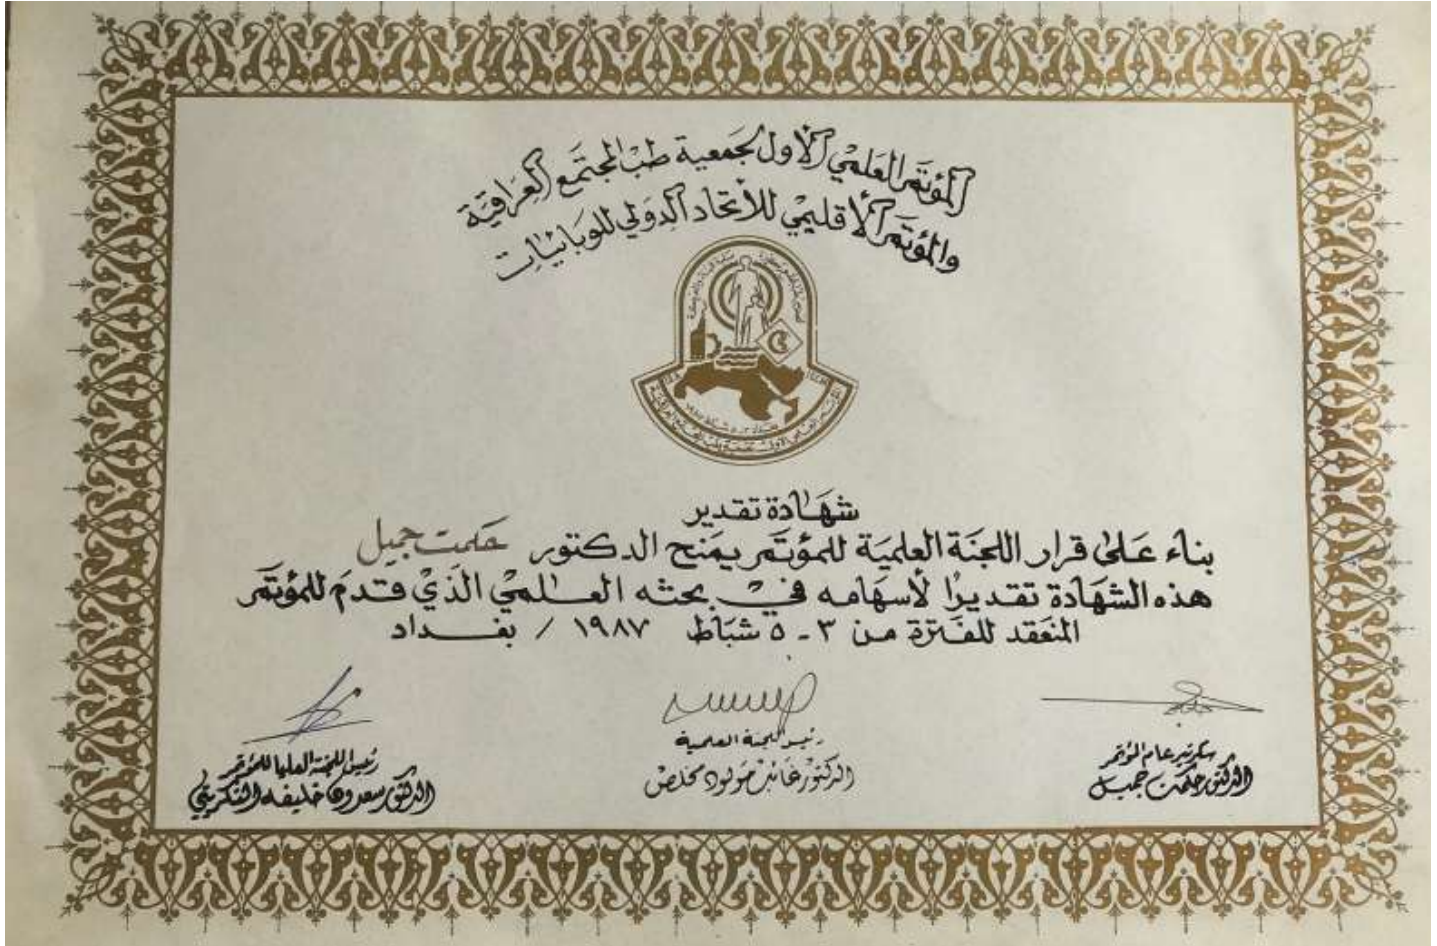 المؤتمر العلمي الأول لجمعية طب المجتمع العراقية
والمؤتمر الأقليمي للأتحاد الدولي للوبائيات
شهادة تقدير
بناء على قرار اللجنة العلمية للمؤتمر يمنح الدكتور حكمت جميل
هذه الشهادة تقديرا لأسهامه في بحثه العلمي الذي قدم للمؤتمر
المنعقد للفترة من ٣ - ٥ شباط ١٩٨٧ / بغداد
سكرتير عام المؤتمر
الدكتور حكمت جميل
رئيس اللجنة العلمية
الدكتور غانب مولود مخلص
رئيس اللجنة العليا للمؤتمر
الدكتور سعدون خليفه التكريتي